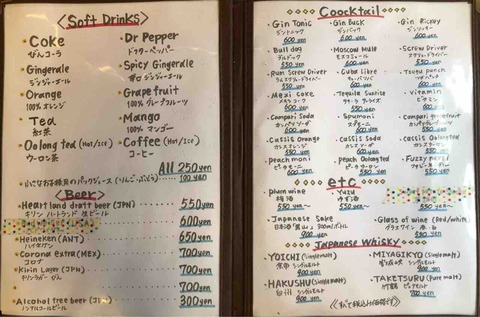 <Soft Drinks>
・Coke
びんコーラ
・Dr Pepper
ドクターペッパー
・Gingerale
ジンジャーエール
・Spicy Gingerale
辛口 ジンジャーエール
・Orange
100% オレンジ
・Grapefruit
100% グレープフルーツ
・Tea
紅茶
・Mango
100% マンゴー
・Oolong tea (Hot/Ice)
ウーロン茶
・Coffee (Hot/Ice)
コーヒー
All 250yen
100 yen
<Beer>
・Heartland draft beer (JPN) 550yen
キリン ハートランド 生ビール
600yen
・Heineken (ANT) 650yen
ハイネケン
・Corona extra (MEX) 700yen
コロナ
・Kirin Lager (JPN) 700yen
キリンラガー びん
700yen
・Alcohol free beer 300yen
ノンアルコールビール
Coocktail
・Gin Tonic
ジントニック
600 yen
・Gin Buck
ジンバック
600 yen
・Gin Rickey
ジンリッキー
600 yen
・Bull dog
ブルドッグ
550 yen
・Moscow Mule
モスコミュール
600 yen
・Screw Driver
スクリュードライバー
550 yen
・Rum Screw Driver
ラムスクリュードライバー
550 yen
・Cuba Libre
キューバリブレ
600 yen
・Tsugu punch
600 yen
・Mexi Coke
メキシコーク
600 yen
・Tequila Sunrise
テキーラ サンライズ
550 yen
・Vitamin
ビタミン
600 yen
・Campari Soda
カンパリソーダ
600 yen
・Spumoni
スプモーニ
600 yen
・Campari grapefruit
600 yen
・Cassis Orange
カシスオレンジ
550 yen
・Cassis Soda
カシスソーダ
550 yen
・Cassis Oolong tea
カシスウーロン
550 yen
・Peach moni
ピーチモーニ
600 yen
・Peach Oolong tea
ピーチウーロン
550 yen
・Fuzzy navel
ファジーネーブル
550 yen
etc
・Plum wine
梅酒
550 yen~
・Yuzu
ゆず酒
550 yen~
・Japanese Sake
900 yen
・Glass of wine (Red/white)
グラスワイン 赤・白
550 yen
Japanese Whisky
・YOICHI (Single malt)
余市 シングルモルト
900 yen
・MIYAGIKYO (Single malt)
宮城峡 シングルモルト
900 yen
・HAKUSHU (Single malt)
白州 シングルモルト
900 yen
・TAKETSURU (Pure malt)
竹鶴 ピュアモルト
900 yen